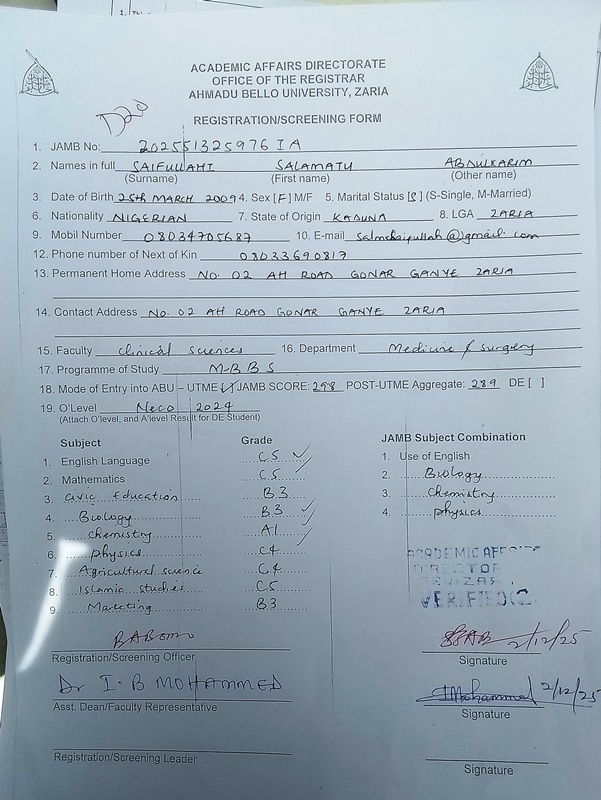 ACADEMIC AFFAIRS DIRECTORATE
OFFICE OF THE REGISTRAR
AHMADU BELLO UNIVERSITY, ZARIA
D20
REGISTRATION/SCREENING FORM
1. JAMB No: 202551325976IA
2. Names in full SAIFULLAHI SALAMATU ABDULKARIM
(Surname) (First name) (Other name)
3. Date of Birth 25th MARCH 2009 4. Sex [F] M/F 5. Marital Status [S] (S-Single, M-Married)
6. Nationality NIGERIAN 7. State of Origin KADUNA 8. LGA ZARIA
9. Mobil Number 08034705687 10. E-mail @gmail.com
12. Phone number of Next of Kin 08033690817
13. Permanent Home Address NO. 02 AH ROAD GONAR GANYE ZARIA
14. Contact Address NO. 02 AH ROAD GONAR GANYE ZARIA
15. Faculty Clinical Sciences 16. Department Medicine & Surgery
17. Programme of Study M-B B S
18. Mode of Entry into ABU – UTME [✓] JAMB SCORE: 298 POST-UTME Aggregate: 289 DE [ ]
19. O'Level Neco 2024
(Attach O'level, and A'level Result for DE Student)
Subject Grade JAMB Subject Combination
1. English Language C5 1. Use of English
2. Mathematics C5 2. Biology
3. Civic Education B3 3. Chemistry
4. Biology B3 4. physics
5. Chemistry A1
6. physics C4
7. Agricultural science C4
8. Islamic studies C5
9. Marketing B3
ACADEMIC AFFAIRS
VERIFIED
2/12/25
Registration/Screening Officer Signature
Dr I. B MOHAMMED IMohammed 2/12/25
Asst. Dean/Faculty Representative Signature
Registration/Screening Leader Signature